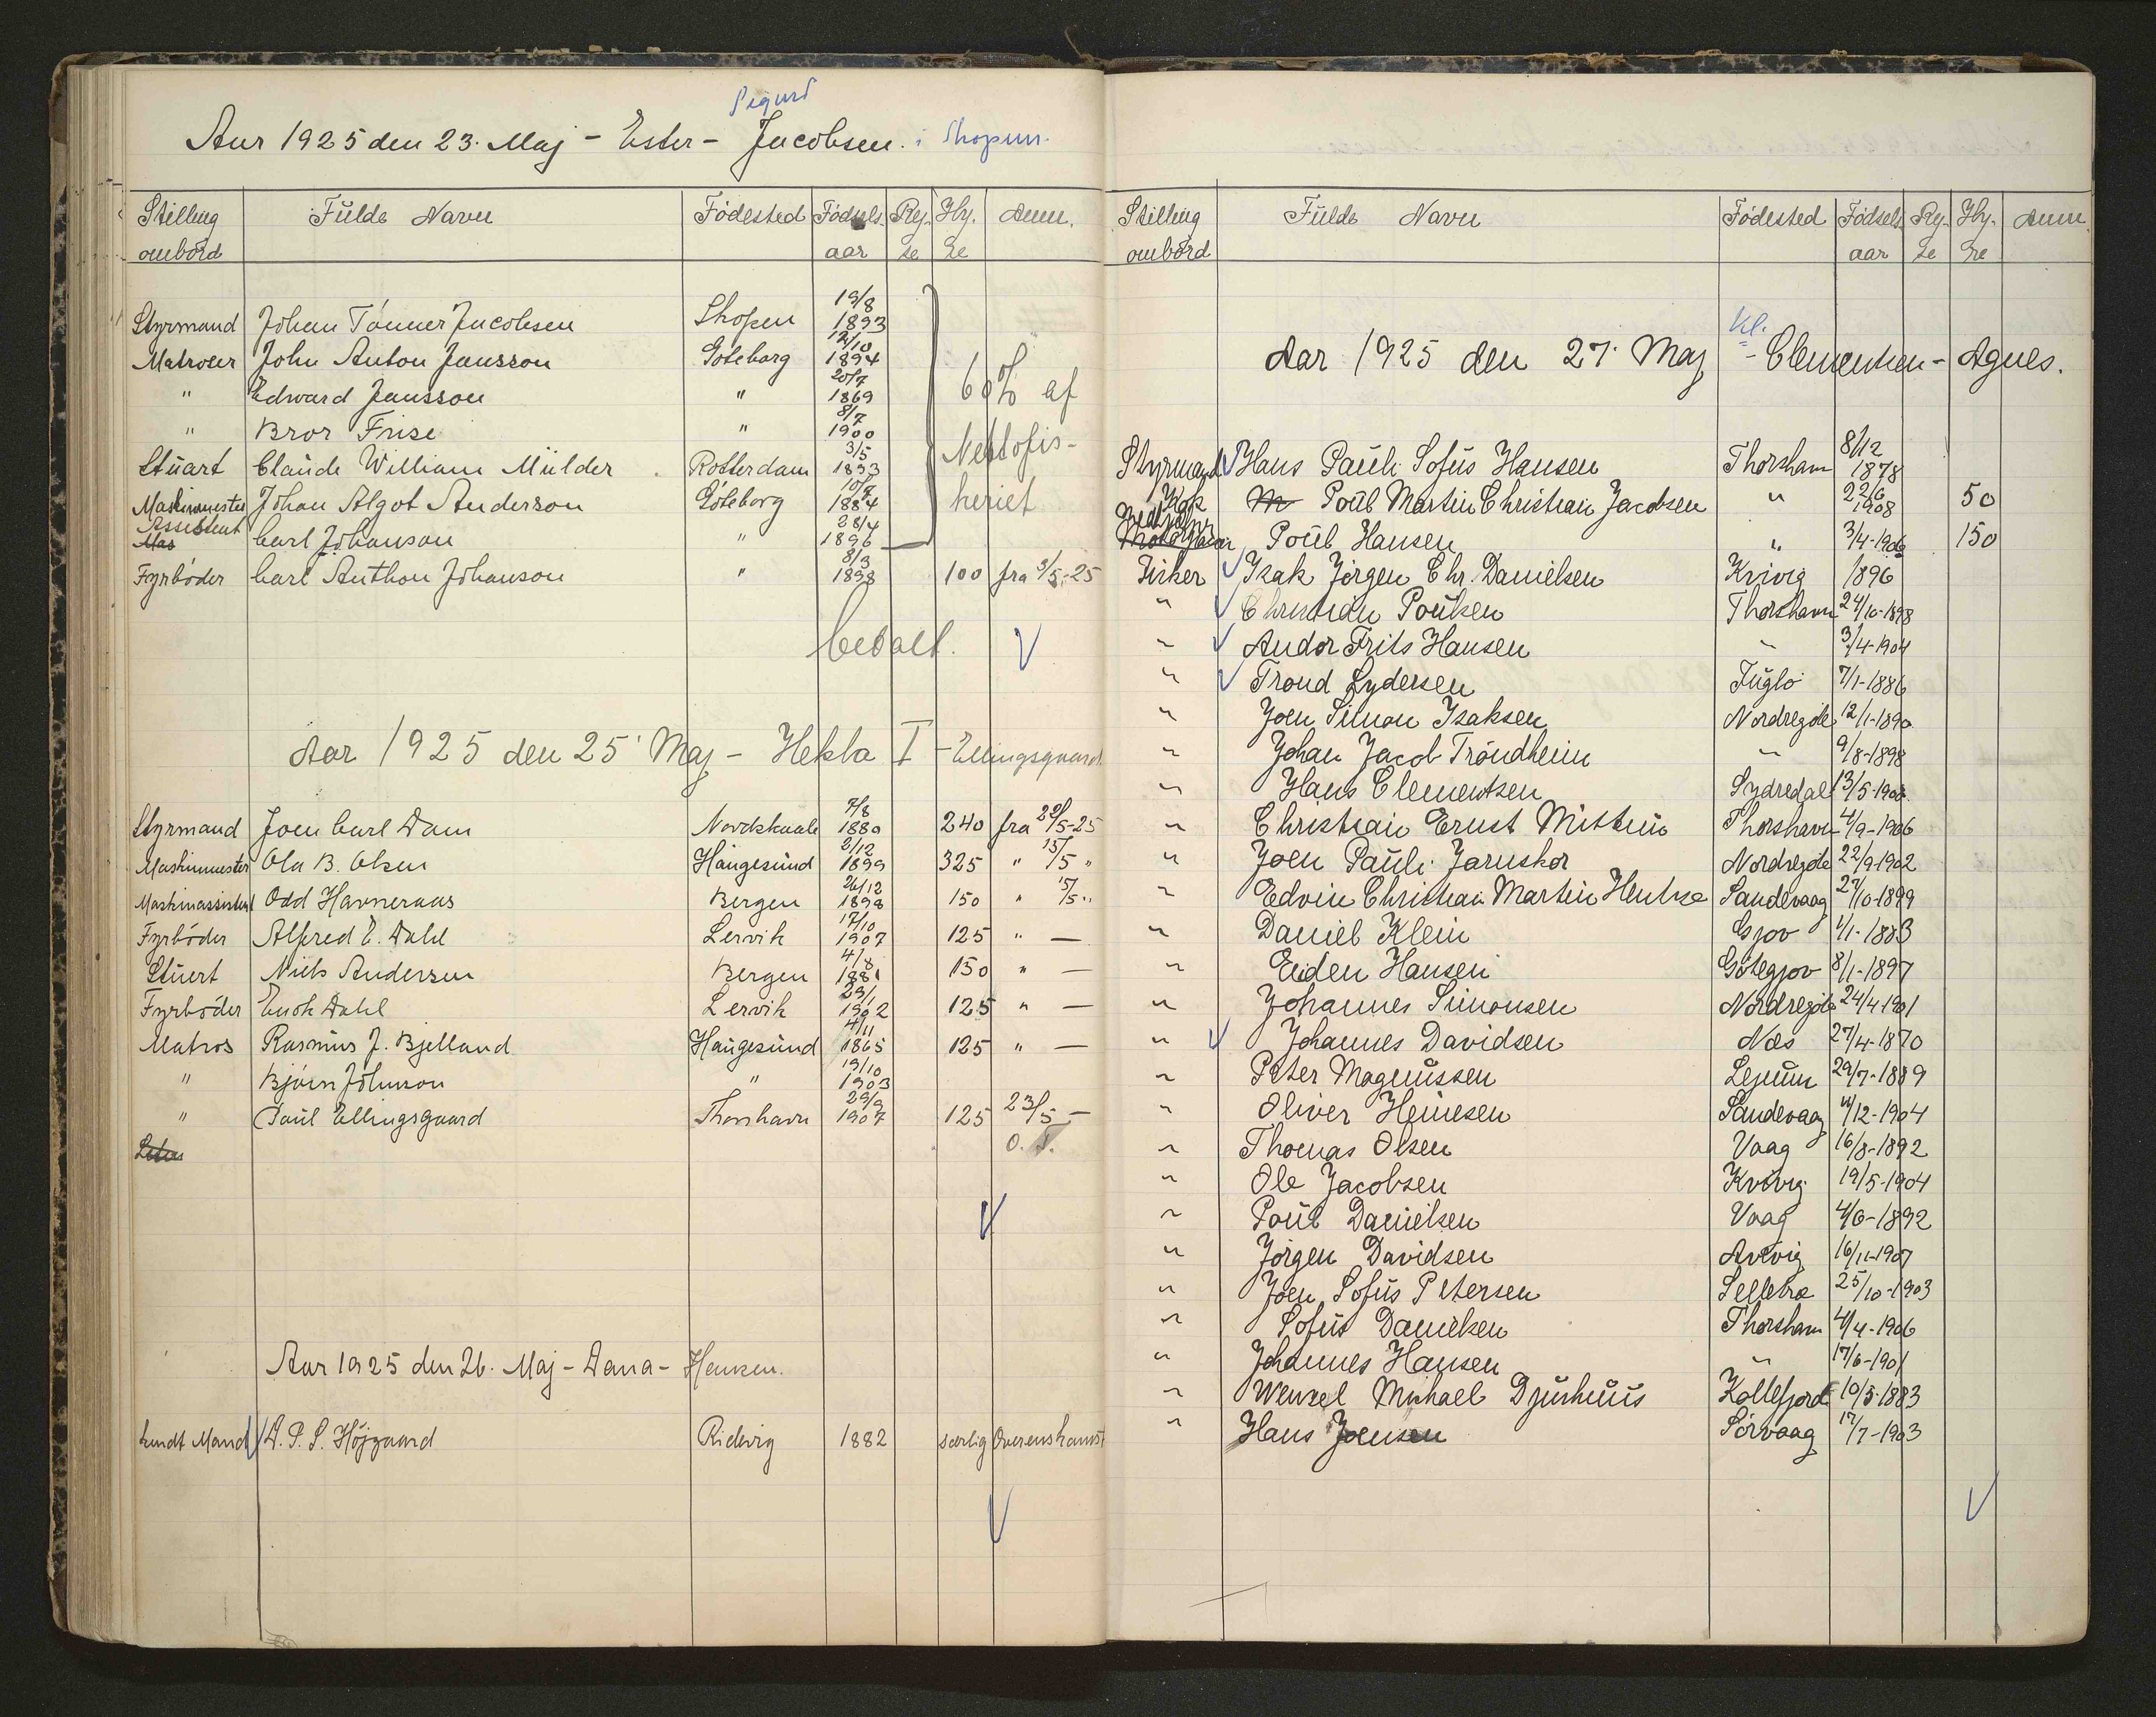 Sigurd
Aar 1925 den 23. Maj - Ester - Jacobsen. i Skopun.
Stilling ombord Fulde Navn Fødested Fødsels aar Rej- se Hy- re Anm.
Styrmand Johan Tønner Jacobsen Skopen 19/8 1893
Matroser John Anton Jansson Göteborg 12/10 1894
" Edward Jansson " 20/7 1869 60% af
" Bror Frise " 8/7 1900 Nettofis-
Stuart Claude William Mülder Rotterdam 3/5 1893
Maskinmester Johan Algot Anderson Göteborg 10/7 1884 keriet
Assistent Carl Johanson " 28/4 1896
Fyrbøder Carl Anthon Johanson " 8/3 1898 100 fra 3/5-25
betalt. V
Aar 1925 den 25' Maj - Hekla I - Ellingsgaard
Styrmand Joen Carl Dam Nordskaale 7/8 1880 240 fra 20/5-25
Maskinmester Ola B. Olsen Haugesund 2/12 1899 325 " 15/5 "
Maskinassistent Odd Havneraas Bergen 26/12 1898 150 " 15/5 "
Fyrbøder Alfred E. Dahl Lervik 17/10 1907 125 " —
Stuert Niels Andersen Bergen 4/8 1881 150 " —
Fyrbøder Enok Dahl Lervik 29/1 1902 125 " —
Matros Rasmus J. Bjelland Haugesund 4/11 1865 125 " —
" Bjørn Johnson " 19/10 1903
" Paul Ellingsgaard Thorshavn 29/9 1907 125 23/5 —
O. S.
V
Aar 1925 den 26. Maj - Dana - Hansen.
kendt Mand V D. P. S. Højgaard Ridevig 1882 særlig Overenskomst
V
Stilling ombord Fulde Navn Fødested Fødsels aar Rej- se Hy- re Anm.
Kl.
Aar 1925 den 27. Maj - Clementsen - Agnes.
Styrmand V Hans Pauli Sofus Hansen Thorshavn 8/12 1878
Kok Poul Martin Christian Jacobsen " 22/6 1908 50
Matros Poul Hansen " 3/4-1906 150
Fisker V Isak Jørgen Chr. Danielsen Kvivig 1896
" V Christian Poulsen Thorshavn 24/10-1898
" V Andor Frits Hansen " 3/4-1904
" V Trond Lydersen Fuglø 7/1-1886
" Joen Simon Isaksen Nordregøte 12/1-1890
" Johan Jacob Trøndheim " 9/8-1898
" Hans Clementsen Sydredal 13/5-1908
" Christian Ernst Mittun Thorshavn 4/9-1906
" Joen Pauli Jarnskor Nordregøte 22/9-1902
" Edvin Christian Martin Hentze Sandevaag 27/10-1899
" Daniel Klein Gjov 1/1-1883
" Eiden Hansen Gøtegjov 8/1-1897
" Johannes Simonsen Nordregøte 24/4-1901
" V Johannes Davidsen Næs 27/4-1870
" Peter Magnussen Lejnum 29/7-1889
" Oliver Heinesen Sandevaag 4/12-1904
" Thomas Olsen Vaag 16/8-1892
" Ole Jacobsen Kvivig 19/5-1904
" Poul Danielsen Vaag 4/6-1892
" Jørgen Davidsen Arivig 16/11-1907
" Joen Sofus Petersen Selletræ 25/10-1903
" Sofus Danielsen Thorshavn 4/4-1906
" Johannes Hansen " 17/6-1901
" Wenzel Michael Djurhuus Kollefjord 10/5-1883
" Hans Joensen Sørvaag 17/7-1903
V